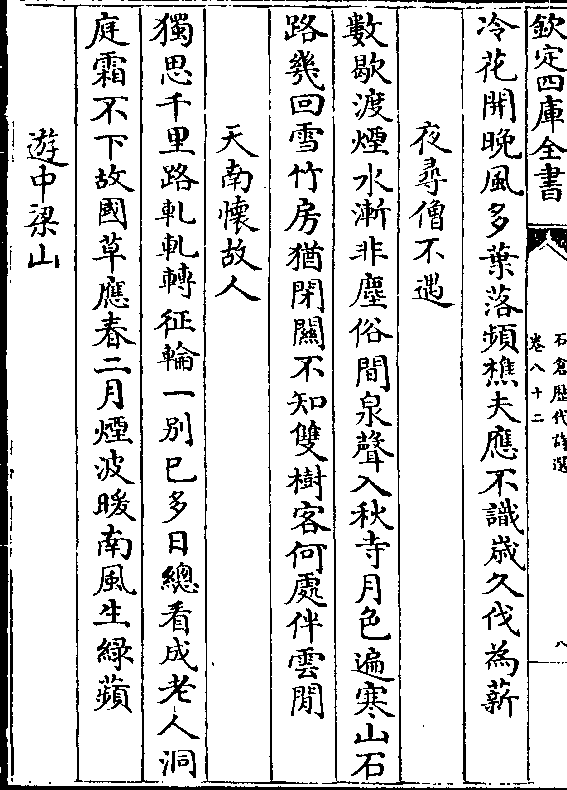 欽定四庫全書
石倉歷代詩選
卷八十二
八
冷花開晚風多葉落頻樵夫應不識歲久伐為薪
夜尋僧不遇
數歇渡煙水漸非塵俗間泉聲入秋寺月色遍寒山石
路幾回雪竹房猶閉關不知雙樹客何處伴雲閒
天南懷故人
獨思千里路軋軋轉征輪一別已多日總看成老人洞
庭霜不下故國草應春二月煙波暖南風生綠蘋
遊中梁山